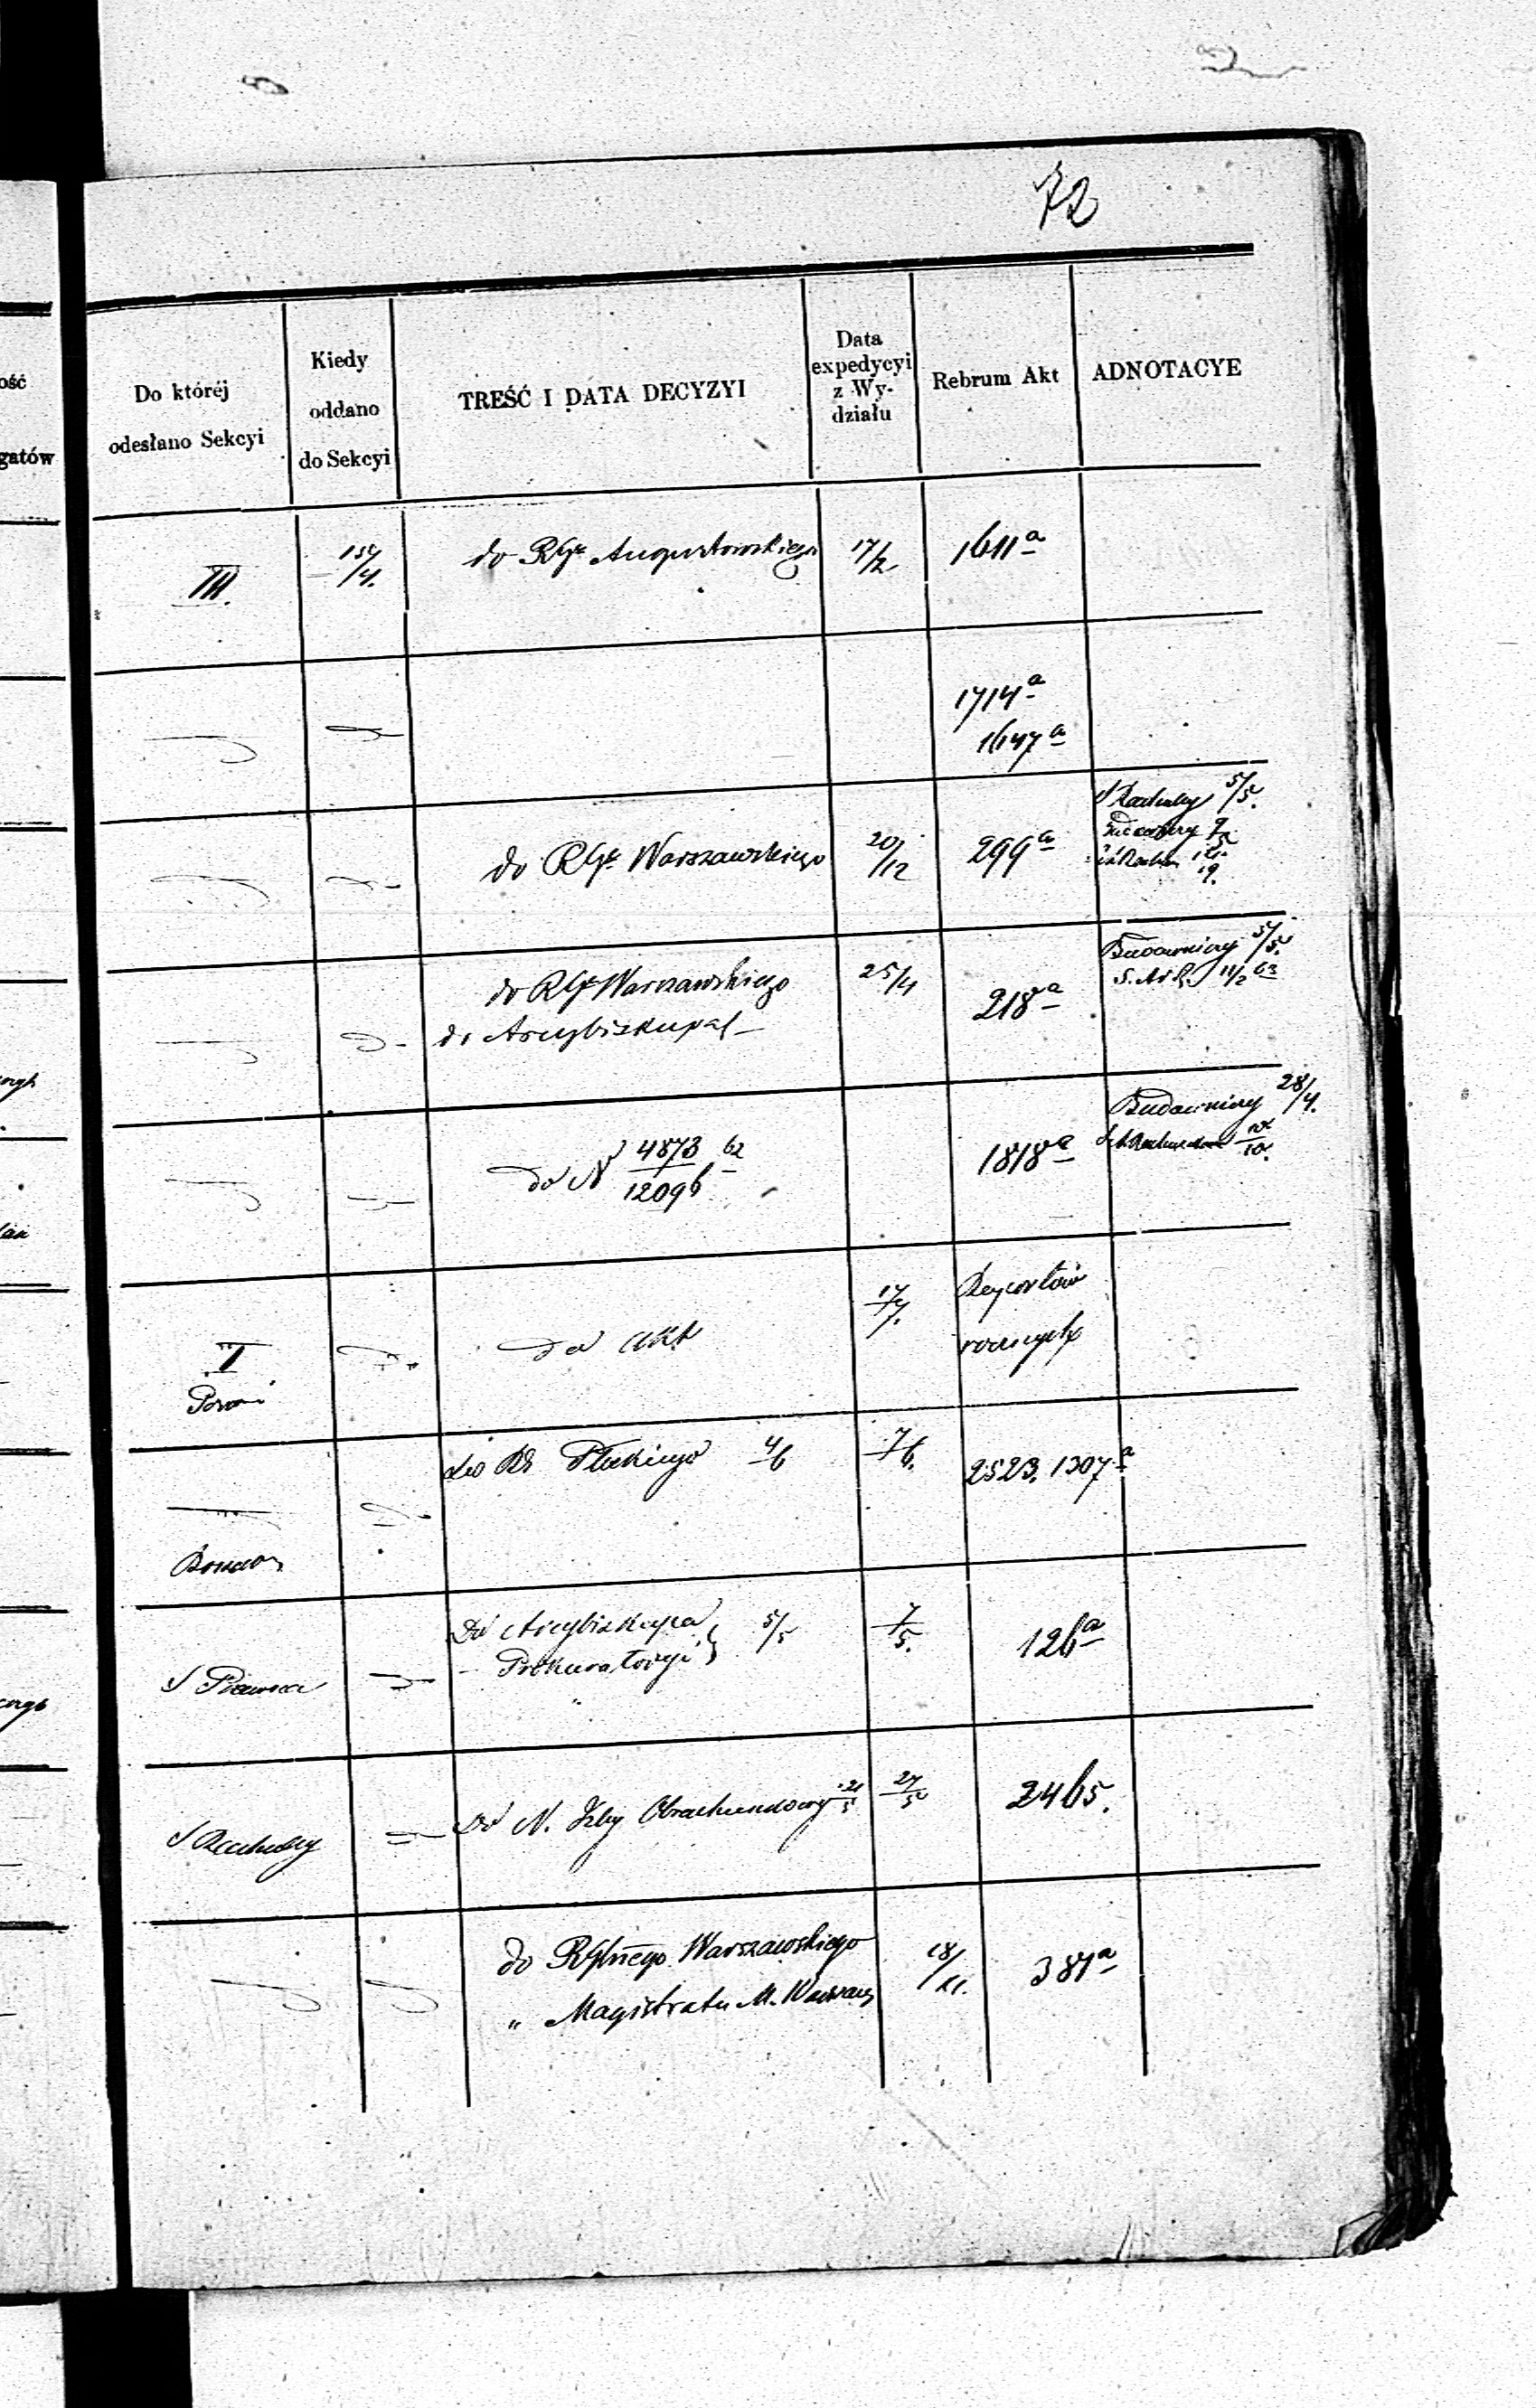 72
ość
gatów
Do któréj
odesłano Sekcyi
Kiedy
oddano
do Sekcyi
TREŚĆ I DATA DECYZYI
Data
expedycyi
z Wy-
działu
Rebrum Akt
ADNOTACYE
III.
15/4.
do RGo Augustowskiego
17/2
1611a
1714a
1647a
do RGo Warszawskiego
20/12
299a
S Rachuby 5/5.
do RGo Warszawskiego
do Arcybiskupa
25/4
218a
Budowniczy 5/5.
11/2 63
do N 4873/12096 62
1818a
Budowniczy 28/4.
I
do akt
17/4.
Raportów
rocznych
do RG Płockiego 4/6
7/6.
2523. 1307a
S Prawna
Do Arcybiskupa
" Prokuratoryi } 5/5
7/5.
126a
S Rachuby
Do N. Izby Obrachunkowey 21/5
27/5
2465.
do RGubnego Warszawskiego
" Magistratu M. Warszawy
18/XI.
381a